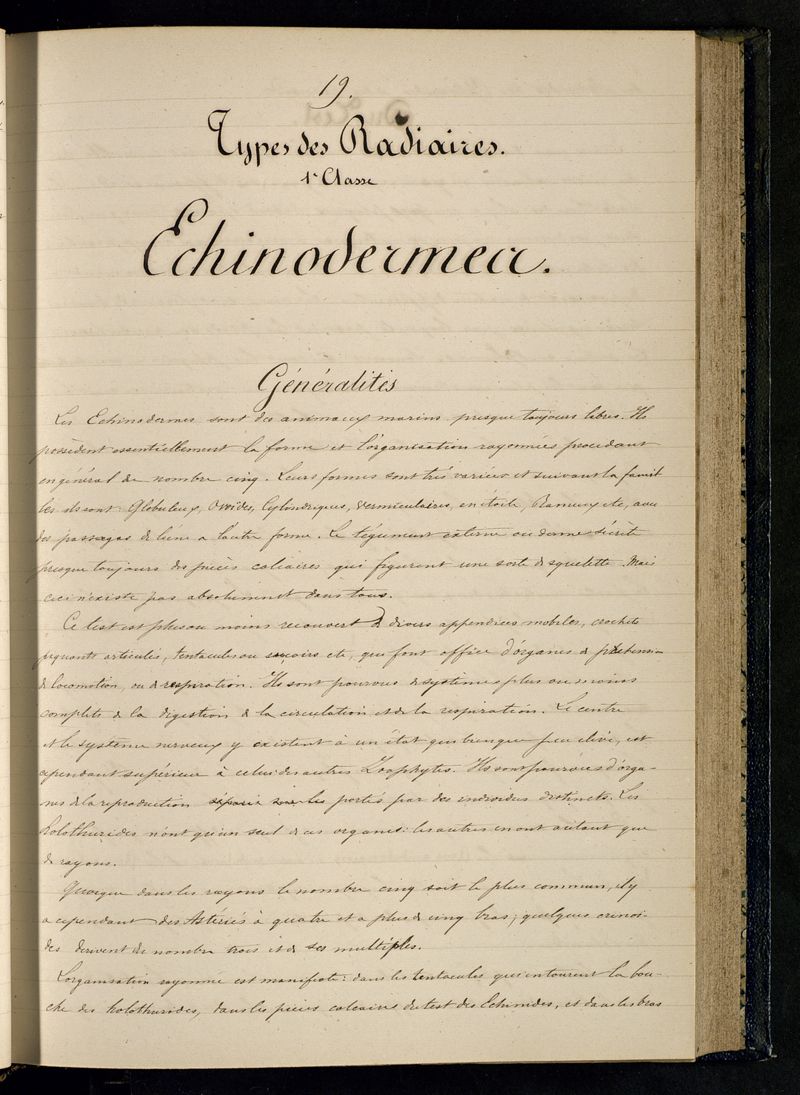 19.
Types des Radiaires.
1e Classe
Echinodermea.
Généralités
Les Echinodermes sont des animaux marins presque toujours libres. Ils
possèdent essentiellement la forme et l'organisation rayonnées procedant
en général de nombre cinq. Leurs formes sont très variées et suivant la famil
les ils sont: Globuleux, Ovoides, Cylindriques, vermiculaires, en étoile, Rameux etc, avec
des passages de l'une a l'autre forme. Le tégument externe ou derme sécrète
presque toujours des pièces calcaires qui figurent une sorte de squelette. Mais
ceci n'existe pas absolument dans tous.
Ce test est plus ou moins recouvert de divers appendices mobiles, crochets
piquants articulés, tentacules ou suçoirs etc, qui font office d'organes de préhension
de locomotion, ou de respiration. Ils sont pourvus de systèmes plus ou moins
complets de la digestion de la circulation et de la respiration. Le centre
et le système nerveux y existent à un état quelconque peu élevé, est
cependant supérieur à celui des autres Zoophytes. Ils sont pourvus d'orga-
nes de la reproduction portés par des individus distincts. Les
holothurides n'ont qu'un seul de ces organes: les autres en ont autant que
de rayons.
Quoique dans les rayons le nombre cinq soit le plus commun, il y
a cependant des Astéries à quatre et a plus de cinq bras; quelques crinoi-
des derivent du nombre trois et de ses multiples.
L'organisation rayonnée est manifeste: dans les tentacules qui entourent la bou-
che des holothurides, dans les pièces calcaires du test des Echinides, et dans les bras